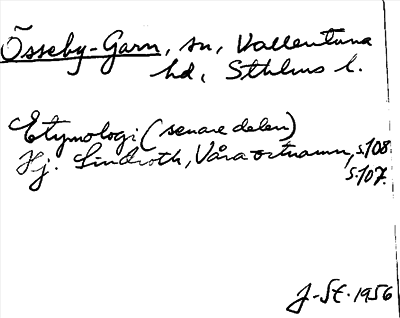 Össeby-Garn, sn, Vallentuna
hd, Sthlms l.
Etymologi (senare delen)
Hj. Lindroth, Våra ortnamn, s.108
s.107.
J-St. 1956